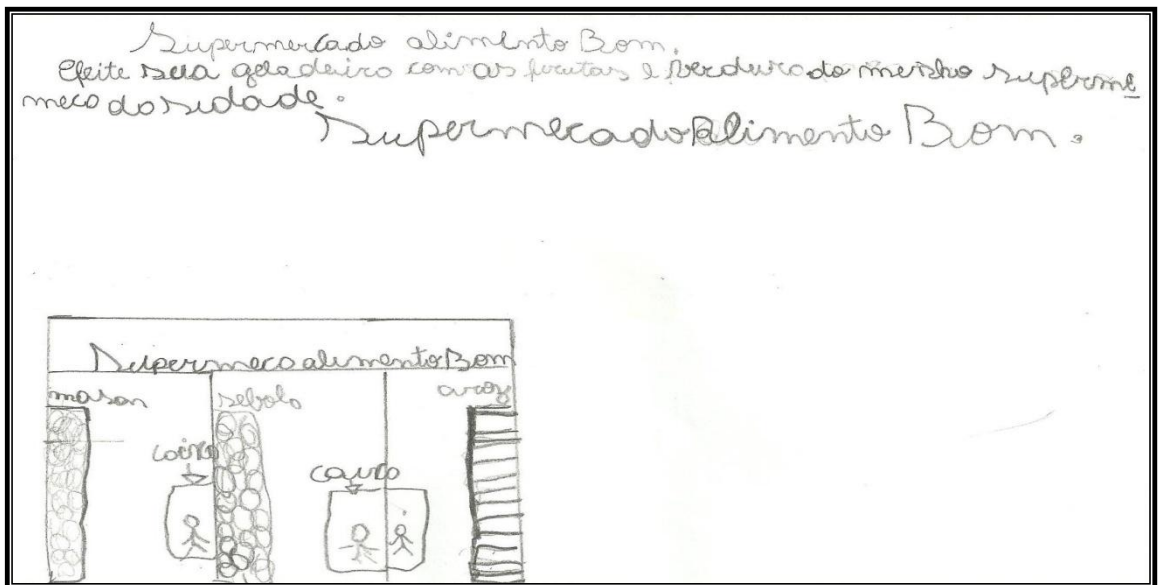 Supermercado alimento Bom.
Efeite sua geladeira com as frutas e verdura do mersho superme
meco da sidade.
Supermecado Alimento Bom.
Supermeco alimento Bom
masan sebola aroz
caixa
caixa